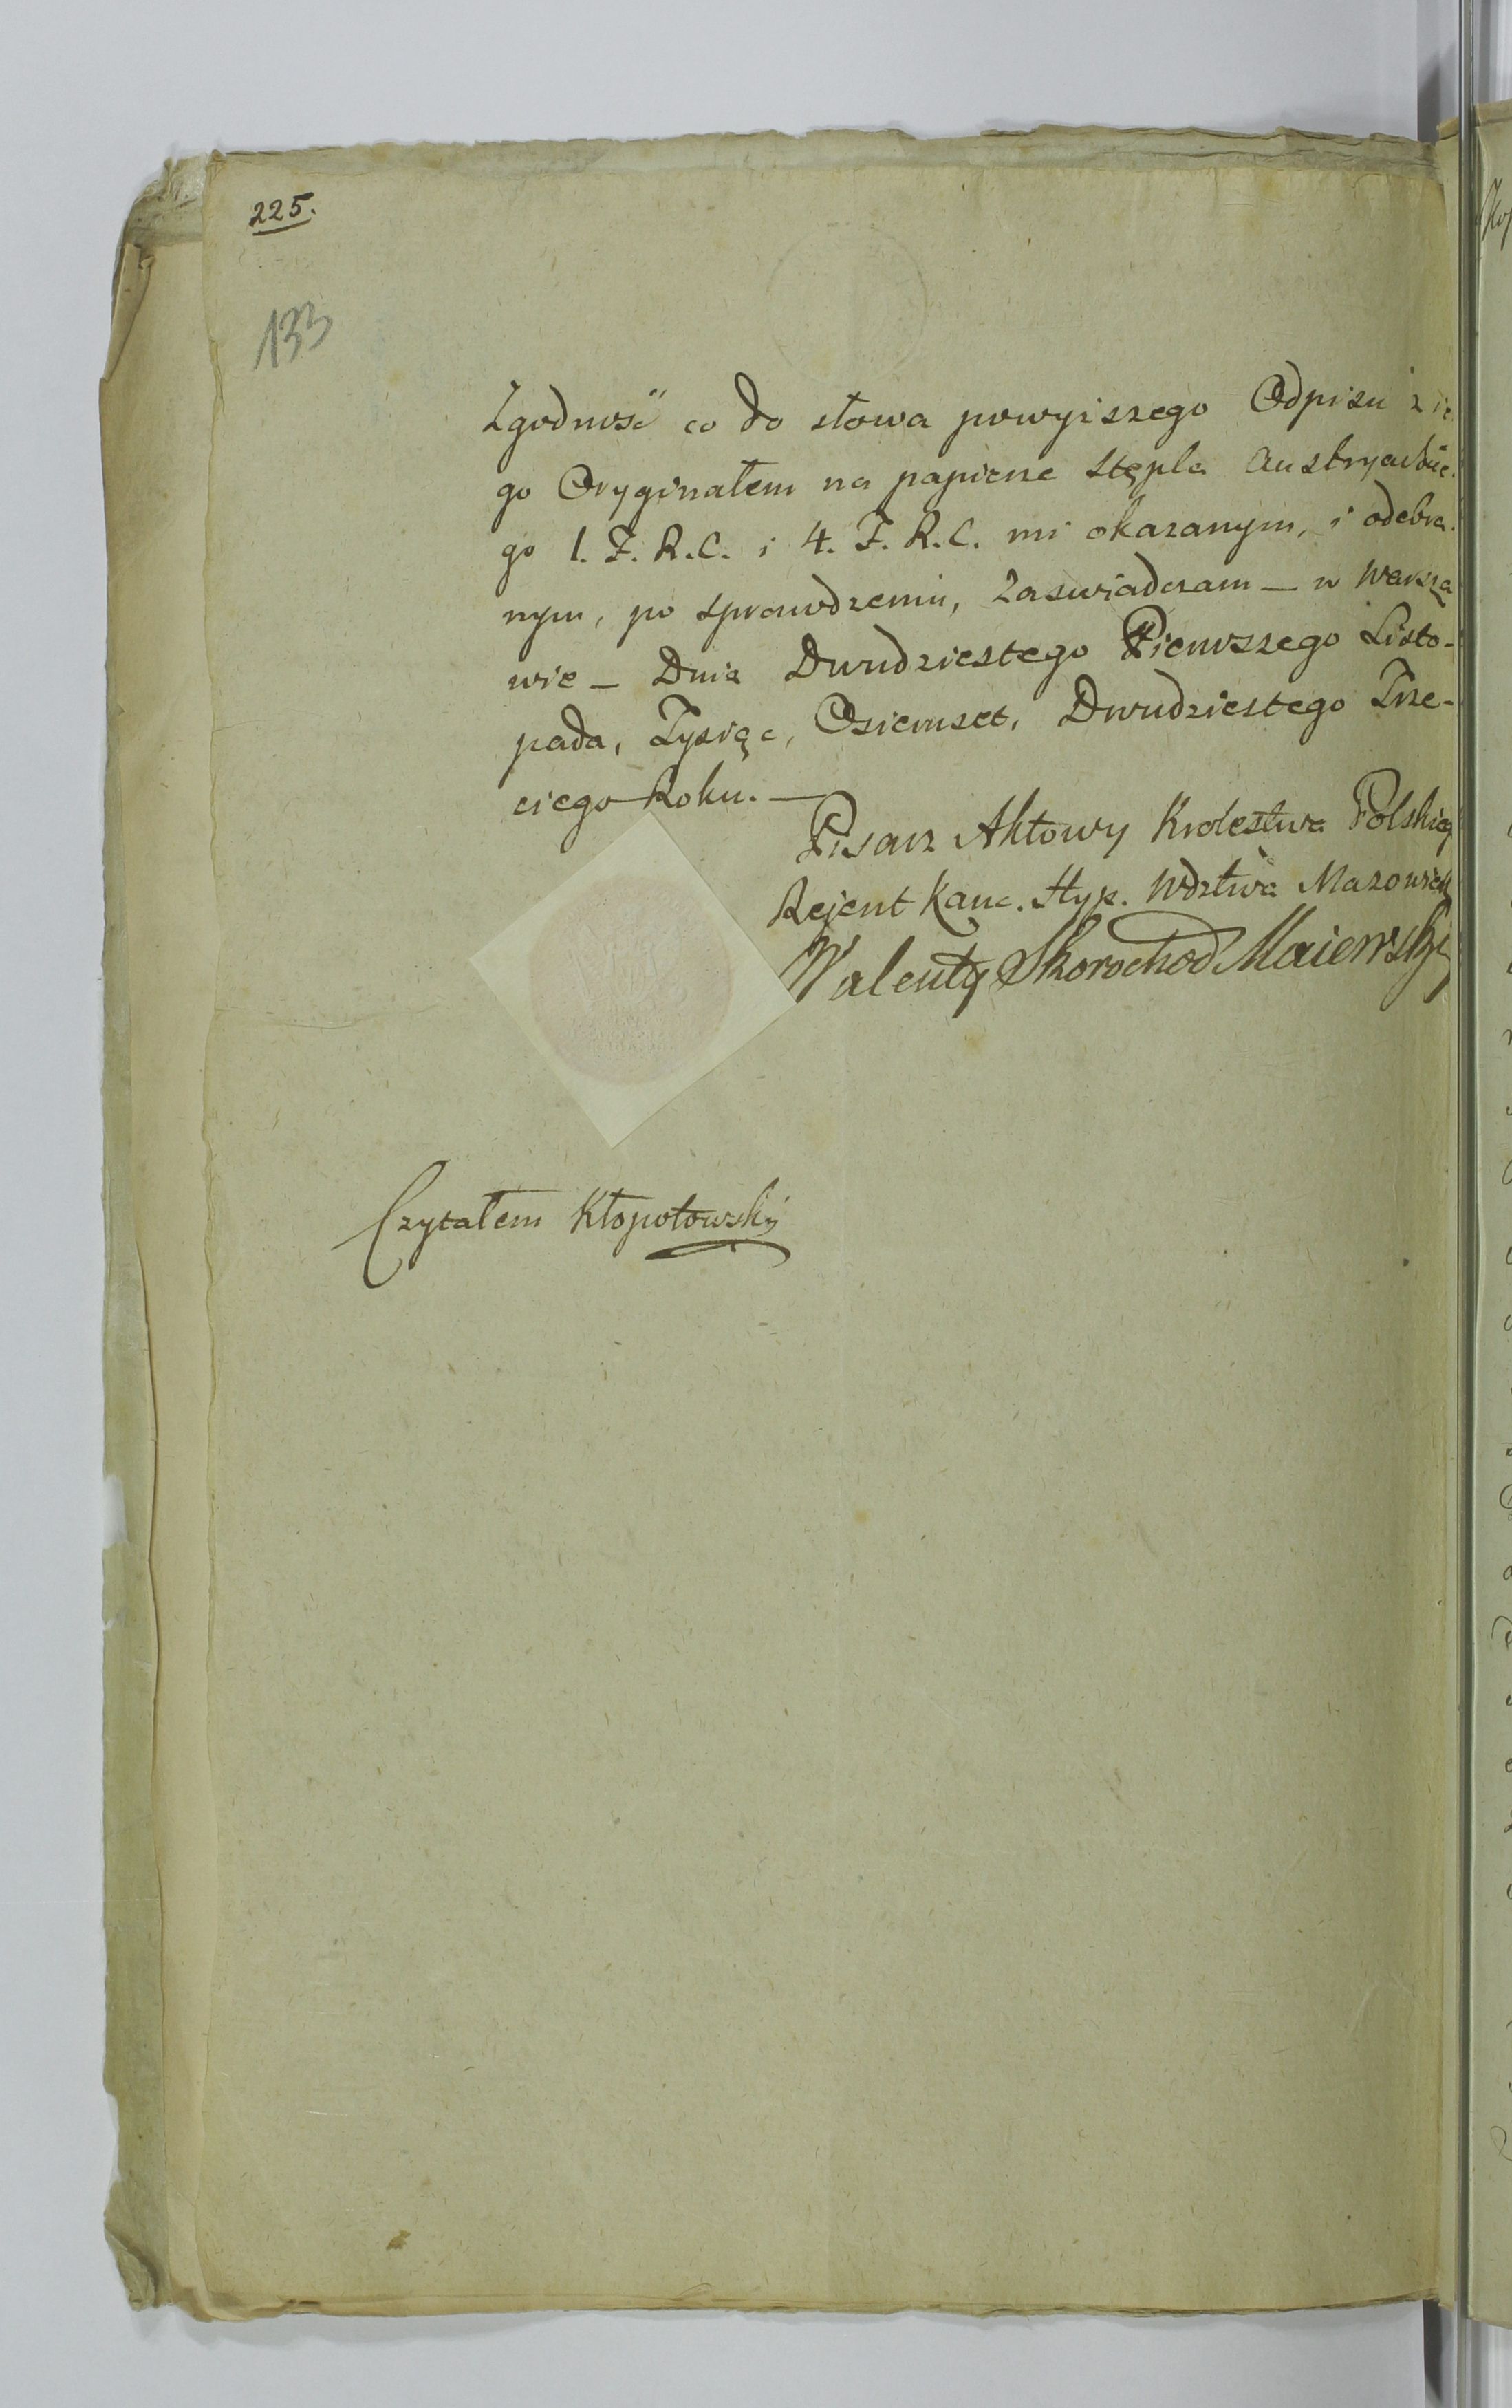 225.
133
Zgodność co do słowa powyiszego Odpisu z ie
go Oryginałem na papierze Stępla Austryackie-
go 1. F. R. C. i 4. F. R. C. mi okazanym, i odebra-
nym, po sprawdzeniu, Zaswiadczam — w Warsza
wie — Dnia Dwudziestego Pierwszego Listo-
pada, Tysiąc, Osiemset, Dwudziestego Trze-
ciego Roku. —
Pisarz Aktowy Krolestwa Polskieg
Rejent Kanc. Hyp. Wdztwa Mazowieck
Walenty Skorochod Maiewski
Czytałem Kłopotowski